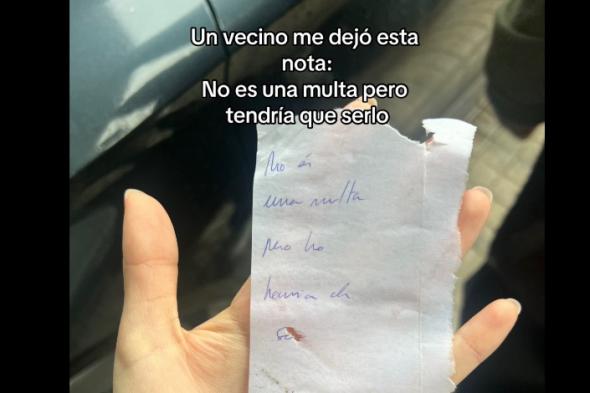 Un vecino me dejó esta
nota:
No es una multa pero
tendría que serlo
No és
una multa
pero ho
hauria de